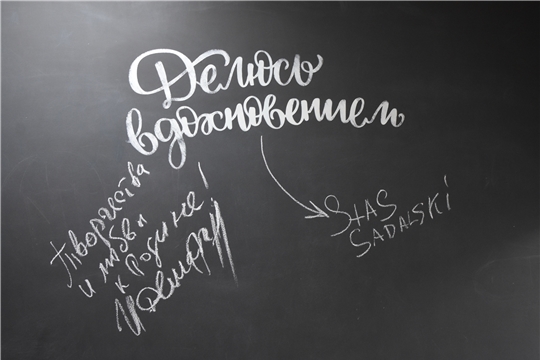 Делюсь
вдохновением
творчества
и любви
к Родине!
Stas
Sadalski